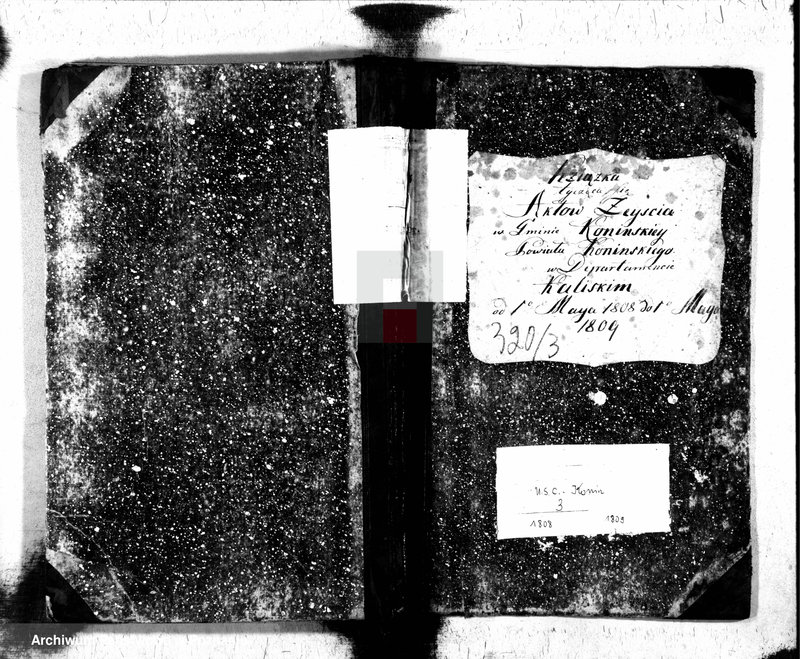 Xiążka
Aktow Zeyścia
w Gminie Konińskiey
Powiatu Konińskiego
w Departamencie
Kaliskim
od 1º Maya 1808 do 1º Maya
1809
320/3
U.S.C. Konin
3
1808 1809
Archiwu